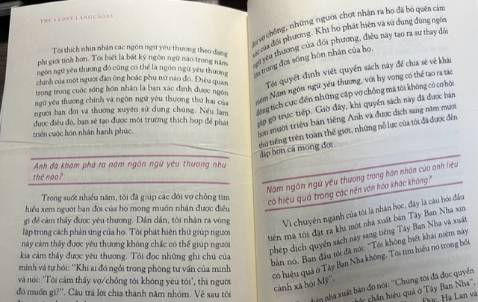 THE 5 LOVE LANGUAGES
Tôi thích nhìn nhận các ngôn ngữ yêu thương theo dạng
phi giới tính hơn. Tôi biết là bất kỳ ngôn ngữ nào trong năm
ngôn ngữ yêu thương đó cũng có thể là ngôn ngữ yêu thương
chính của một người đàn ông hoặc phụ nữ nào đó. Điều quan
trọng trong cuộc sống hôn nhân là bạn xác định được ngôn
ngữ yêu thương chính và ngôn ngữ yêu thương thứ hai của
người bạn đời và thường xuyên sử dụng chúng. Nếu làm
được điều đó, bạn sẽ tạo được môi trường thích hợp để phát
triển cuộc hôn nhân hạnh phúc.
Anh đã khám phá ra năm ngôn ngữ yêu thương như
thế nào?
Trong suốt nhiều năm, tôi đã giúp các đôi vợ chồng tìm
hiểu xem người bạn đời của họ mong muốn nhận được điều
gì để cảm thấy được yêu thương. Dần dần, tôi nhận ra vòng
lặp trong cách phản ứng của họ. Tôi phát hiện thứ giúp người
này cảm thấy được yêu thương không chắc có thể giúp người
kia cảm thấy được yêu thương. Tôi đọc những ghi chú của
mình và tự hỏi: "Khi ai đó ngồi trong phòng tư vấn của mình
và nói: 'Tôi cảm thấy vợ/chồng tôi không yêu tôi', thì người
đó muốn gì?". Câu trả lời chia thành năm nhóm. Về sau tôi
vợ chồng, những người chợt nhận ra họ đã bỏ quên cảm
của đối phương. Khi họ phát hiện và sử dụng đúng ngôn
ngữ yêu thương của đối phương, điều này tạo ra sự thay đổi
trong đời sống hôn nhân của họ.
Tôi quyết định viết quyển sách này để chia sẻ về khái
niệm Năm ngôn ngữ yêu thương, với hy vọng có thể tạo ra tác
động tích cực đến những cặp vợ chồng mà tôi không có cơ hội
gặp gỡ trực tiếp. Giờ đây, khi quyển sách này đã được bán
hơn mười triệu bản tiếng Anh và được dịch sang năm mươi
thứ tiếng trên toàn thế giới, những nỗ lực của tôi đã được đền
đáp hơn cả mong đợi.
Năm ngôn ngữ yêu thương trong hôn nhân của anh liệu
có hiệu quả trong các nền văn hóa khác không?
Vì chuyên ngành của tôi là nhân học, đây là câu hỏi đầu
tiên mà tôi đặt ra khi một nhà xuất bản Tây Ban Nha xin
phép dịch quyển sách này sang tiếng Tây Ban Nha và xuất
bản nó. Ban đầu tôi đã nói: "Tôi không biết khái niệm này
có hiệu quả ở Tây Ban Nha không. Tôi tìm hiểu nó trong bối
cảnh xã hội Mỹ".
nhà xuất bản đó nói: "Chúng tôi đã đọc quyển
chắn hiệu quả ở Tây Ban Nha".
Hà Lan và